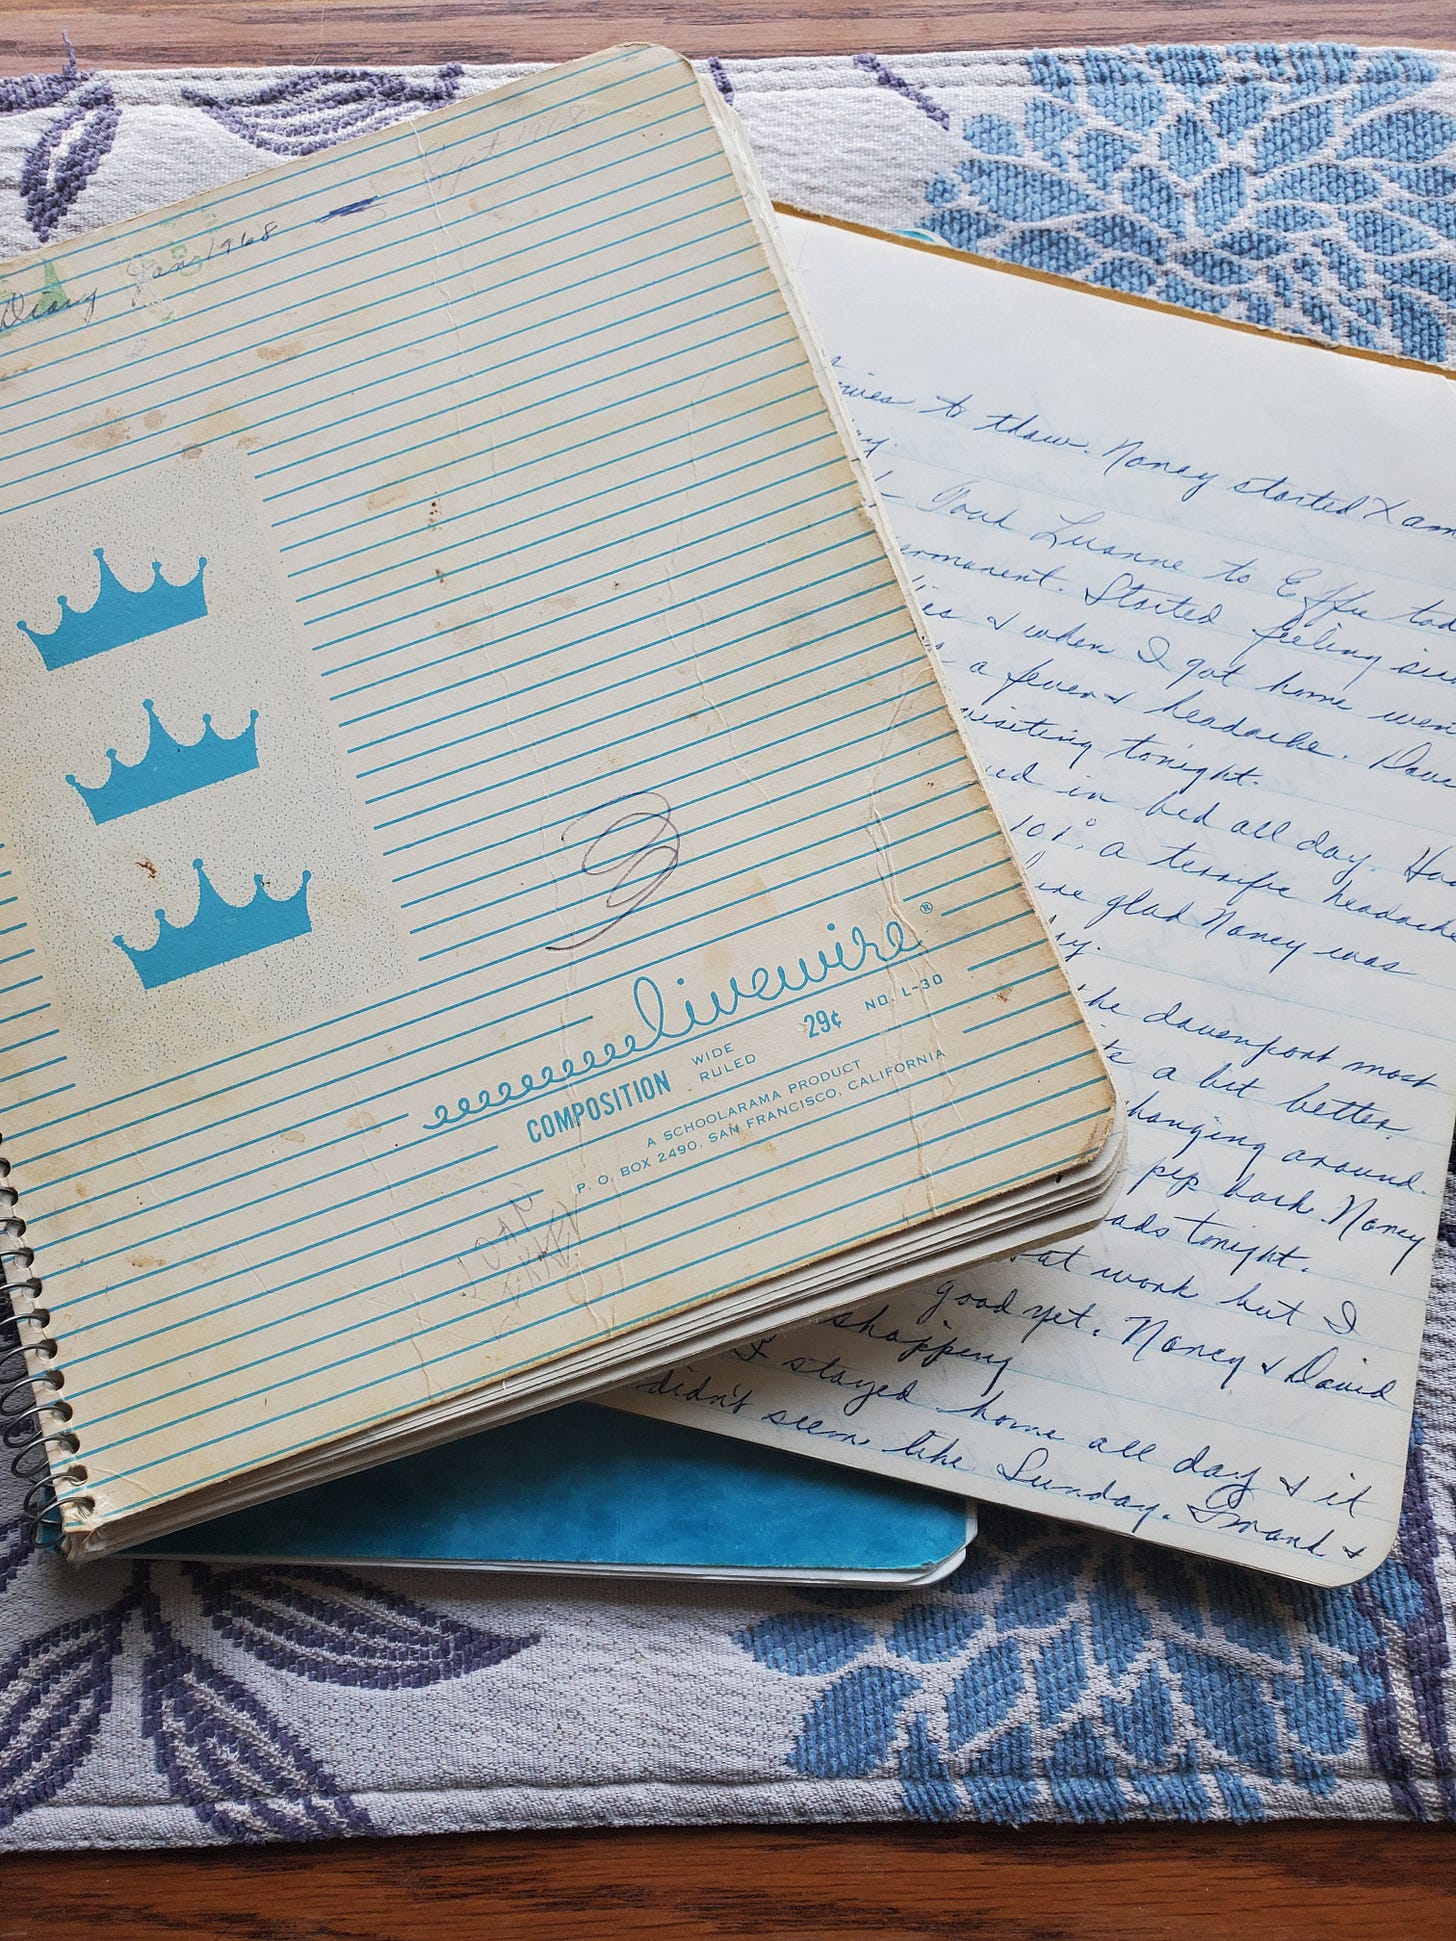 Sept 1968
Diary Jan 1968
livewire®
29¢ NO. L-30
COMPOSITION WIDE RULED
A SCHOOLARAMA PRODUCT
P. O. BOX 2490, SAN FRANCISCO, CALIFORNIA
to thaw. Nancy started X am
Took Luanne to Effie tod
Started feeling
& when I got home wen
a fever & headache. Dave
visiting tonight.
in bed all day. Ha
101°, a terrific headache
glad Nancy was
the davenport most
a bit better.
hanging around.
pep back. Nancy
tonight.
at work but I
good yet. Nancy & David
shopping
I stayed home all day & it
didn't seem like Sunday. Frank &